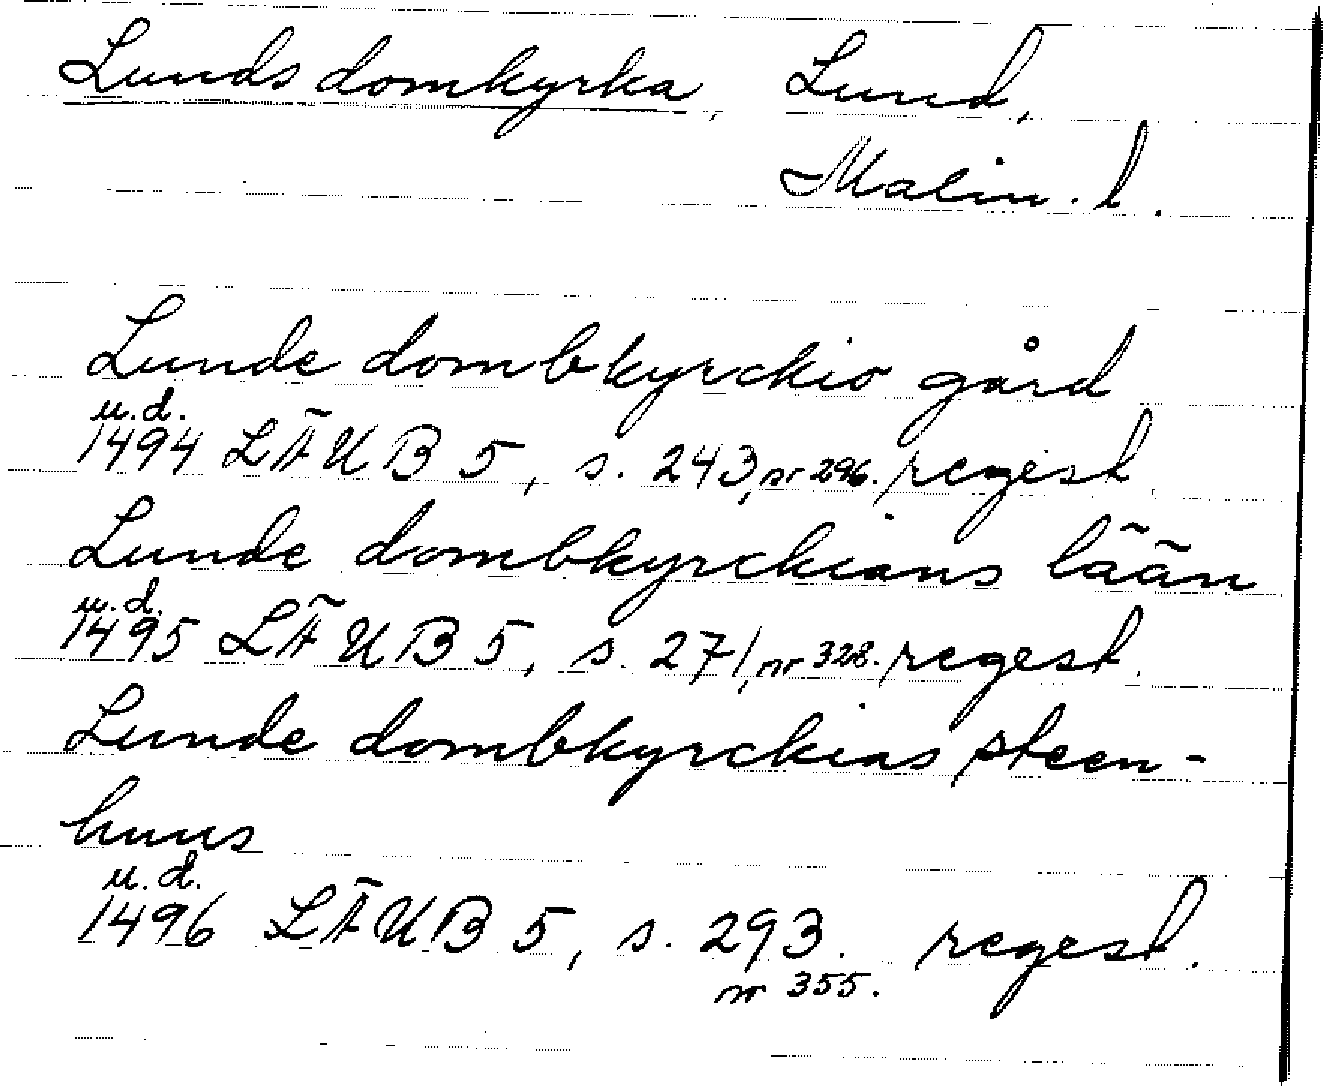 Lunds domkyrka, Lund,
Malm. l.
Lunde dombkyrckio gård
u.d.
1494 LÄUB 5, s. 243, nr 296. regest
Lunde dombkyrckians lään
u.d.
1495 LÄUB 5, s. 271, nr 328. regest.
Lunde dombkyrckias steen-
huus
u.d.
1496 LÄUB 5, s. 293. regest.
nr 355.